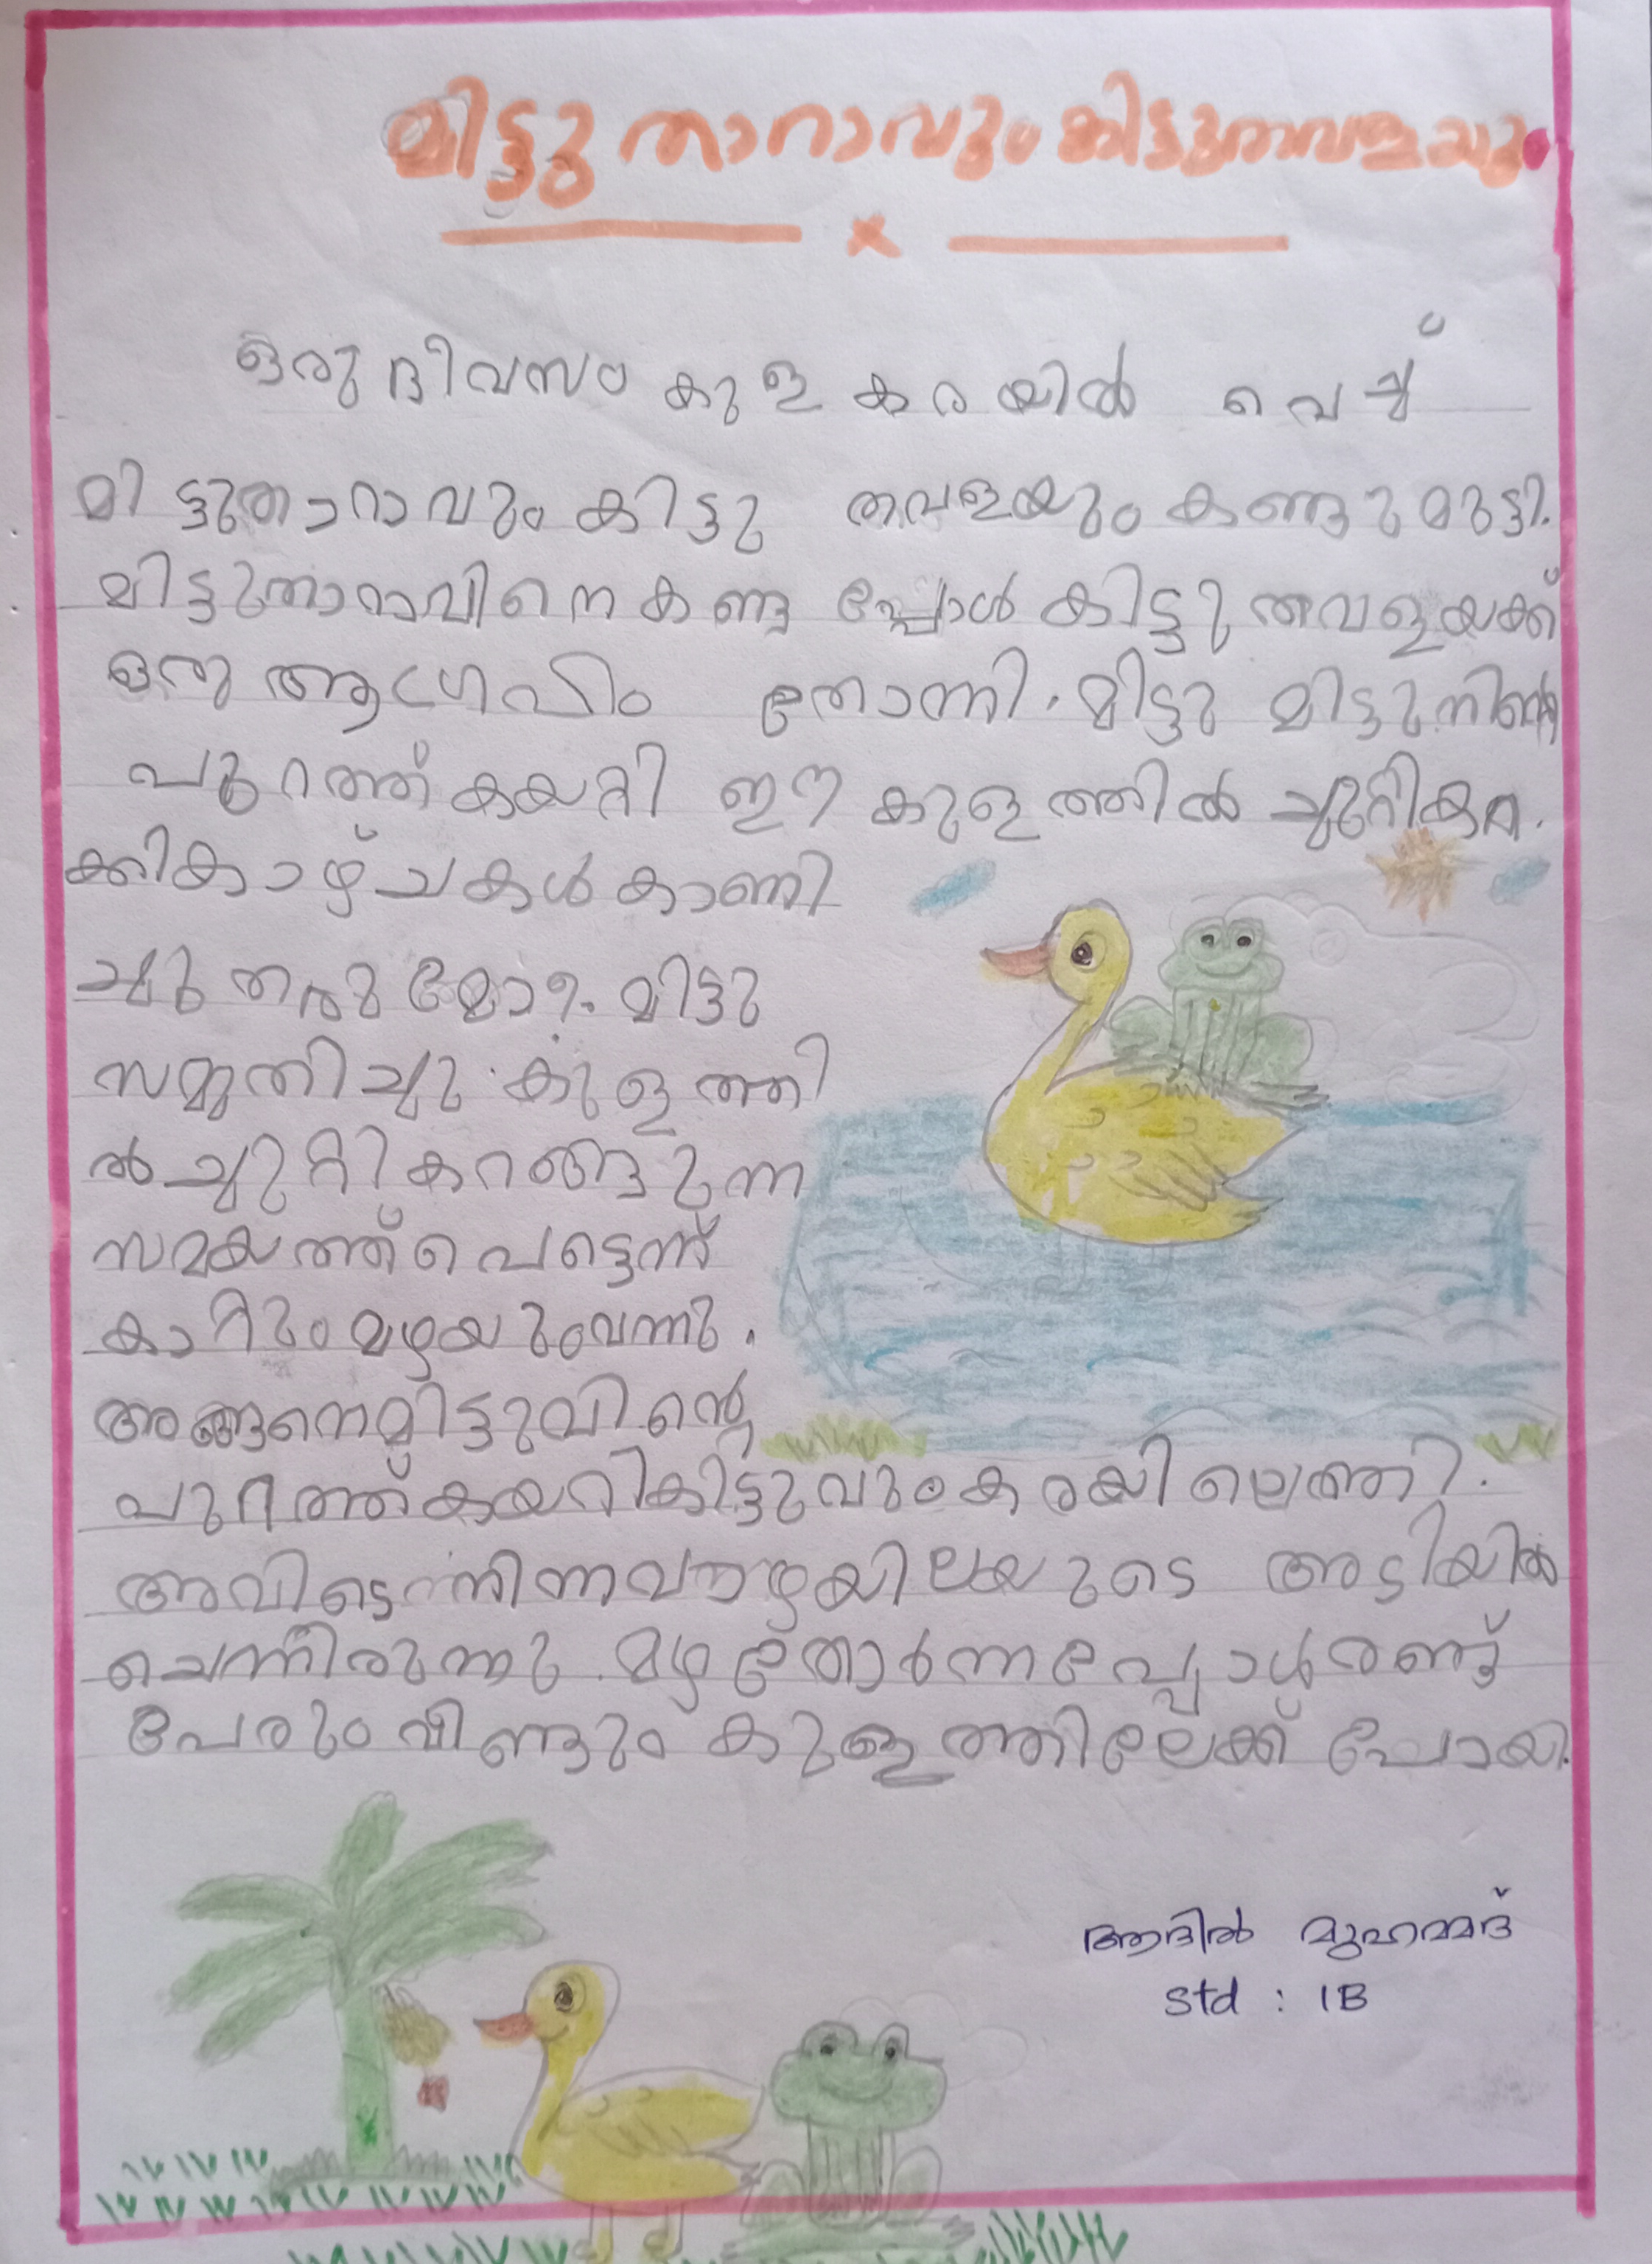 മിട്ടു താറാവും കിട്ടുതവളയും
ഒരു ദിവസം കുള കരയിൽ വെച്ച്
മിട്ടുതാറാവും കിട്ടു തവളയും കണ്ടുമുട്ടി.
മിട്ടുതാറാവിനെ കണ്ട പ്പോൾ കിട്ടു തവളയക്ക്
ഒരു ആഗ്രഹം തോന്നി. മിട്ടു മിട്ടു നിൻ്റെ
പുറത്ത് കയറ്റി ഈ കുളത്തിൽ ചുറ്റികറ
ക്കികാഴ്ചകൾ കാണി
ച്ചു തരുമോ? മിട്ടു
സമ്മതിച്ചു. കുളത്തി
ൽ ചുറ്റികറങ്ങുന്ന
സമയത്ത് പെട്ടെന്ന്
കാറ്റും മഴയും വന്നു.
അങ്ങനെ മിട്ടുവിൻ്റെ
പുറത്ത് കയറി കിട്ടുവും കരയിലെത്തി.
അവിടെ നിന്ന വാഴയിലയുടെ അടിയിൽ
ചെന്നിരുന്നു. മഴ തോർന്നപ്പോൾ രണ്ട്
പേരും വീണ്ടും കുളത്തിലേക്ക് പോയി.
ആദിൽ മുഹമ്മദ്
std : 1B